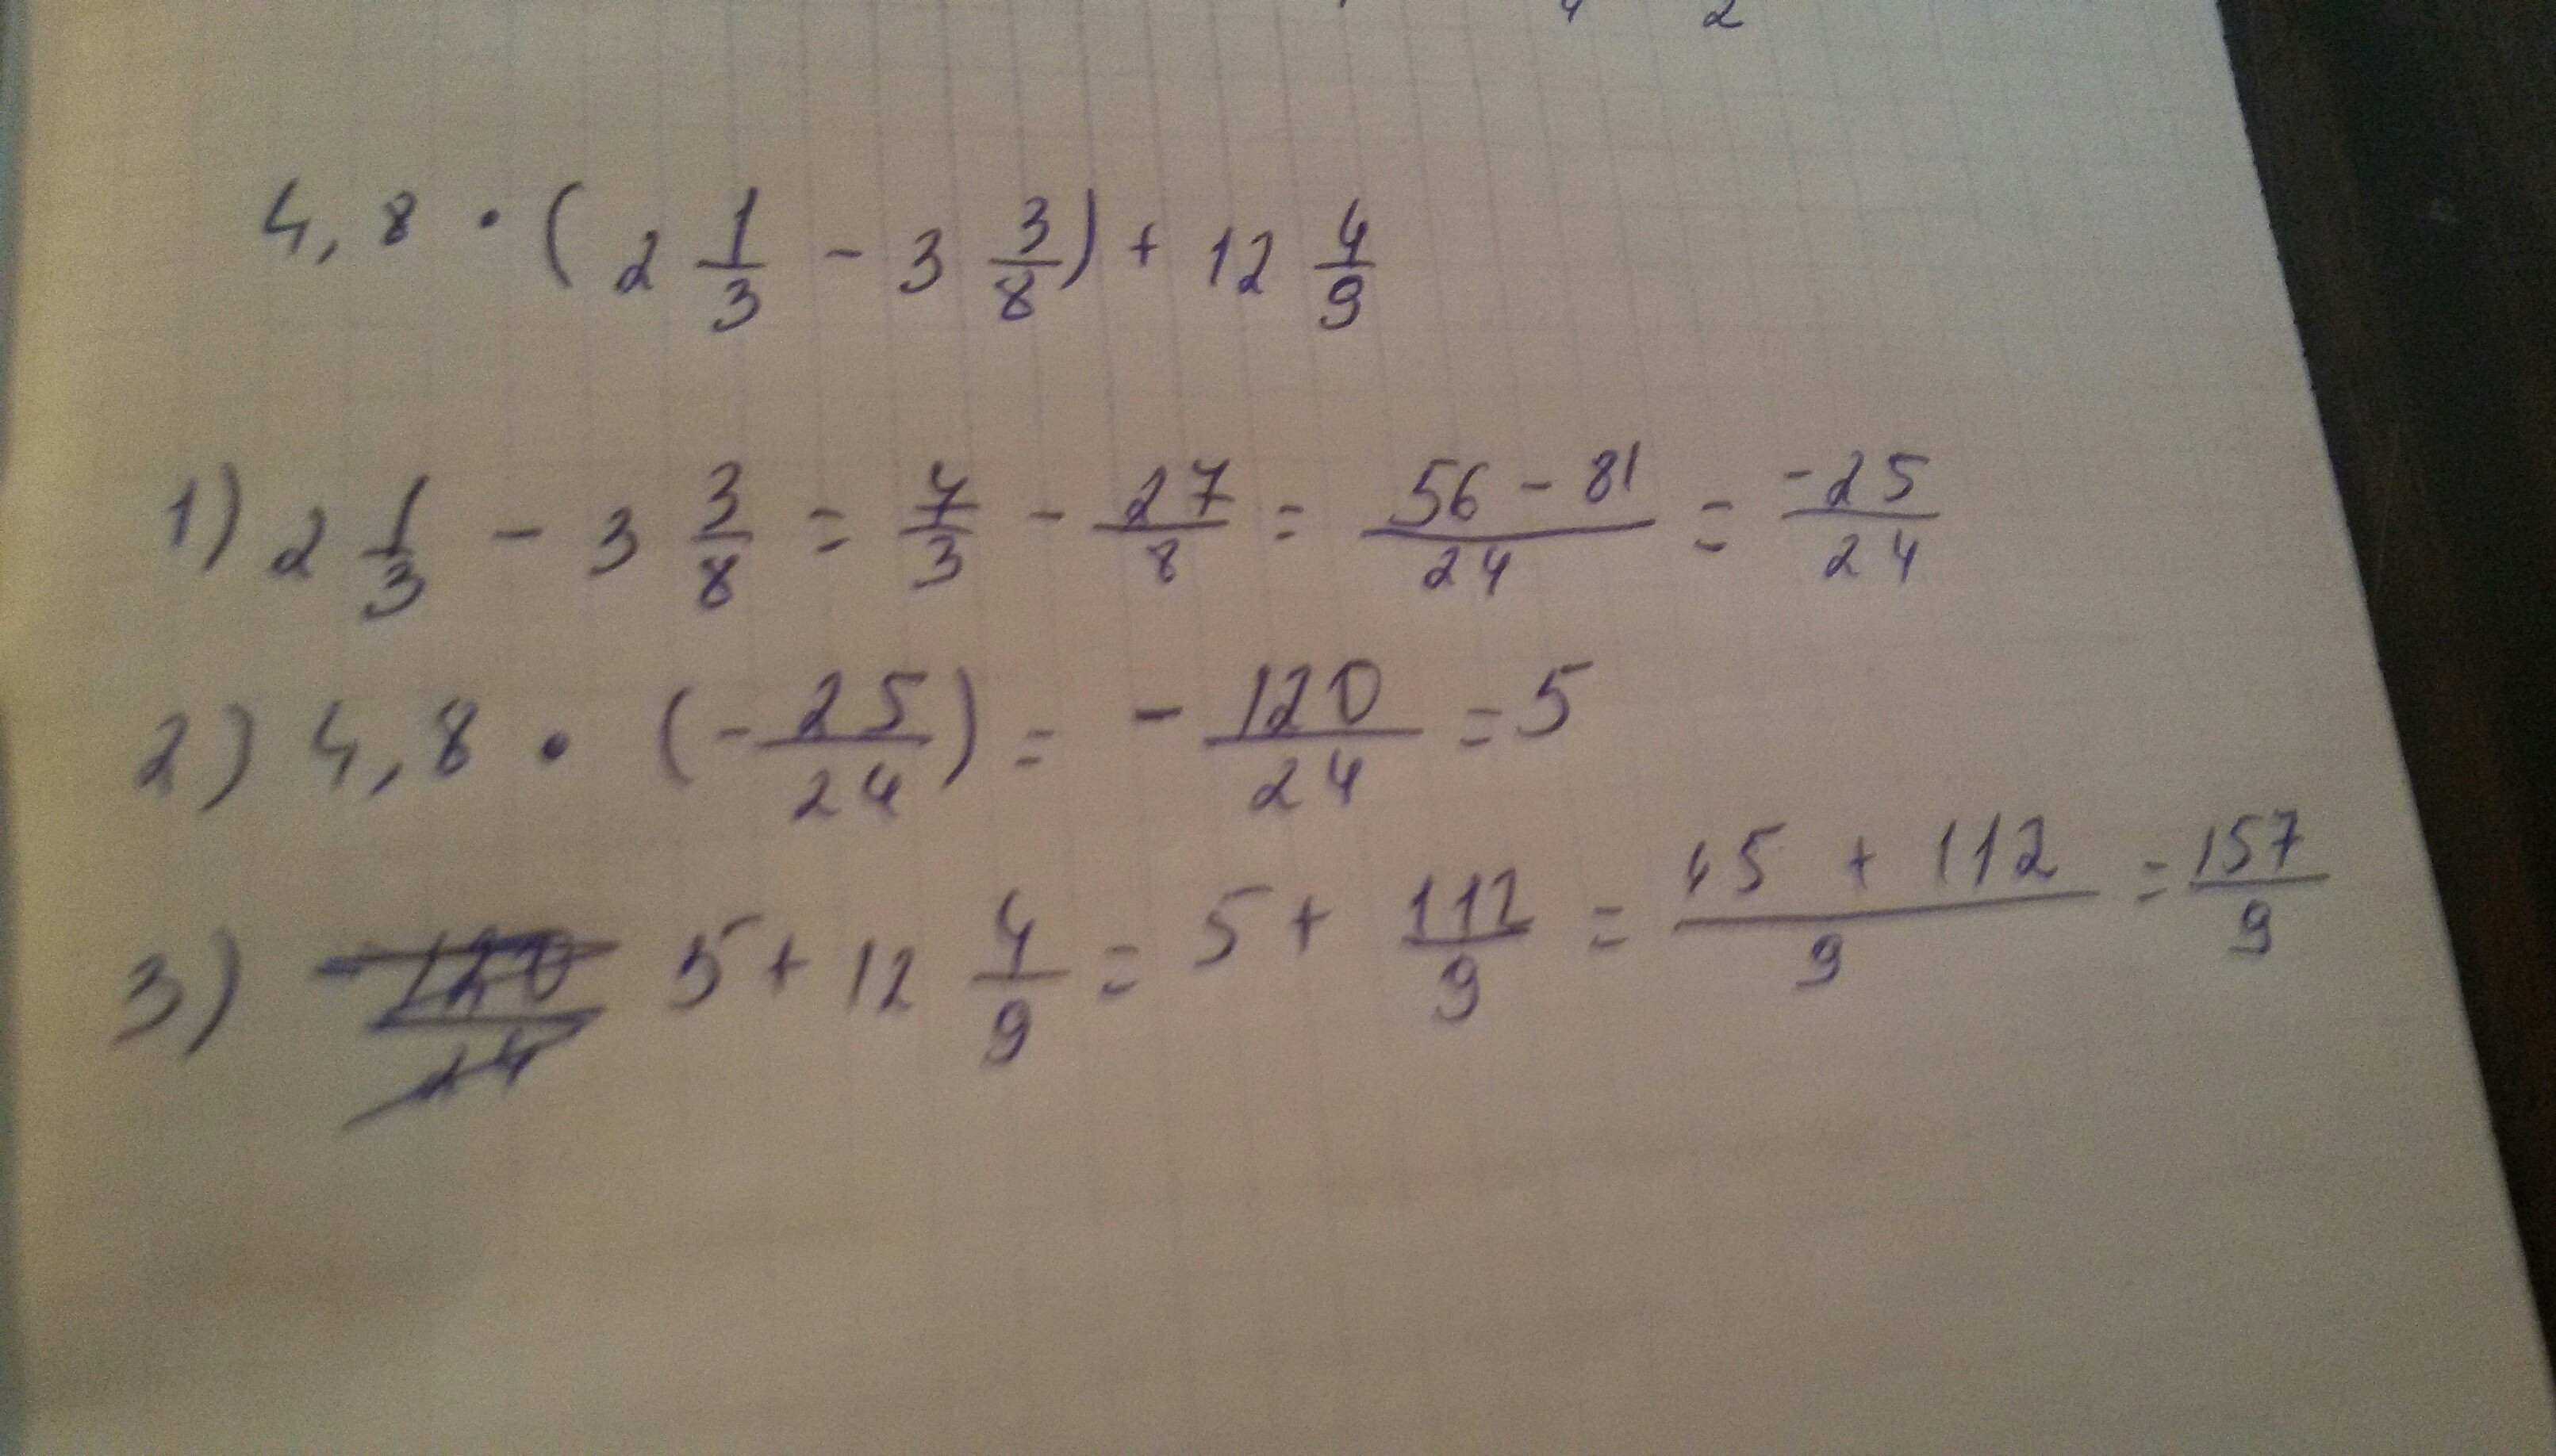 4 2
4,8 · (2 1/3 - 3 3/8) + 12 4/9
1) 2 1/3 - 3 3/8 = 7/3 - 27/8 = (56 - 81)/24 = -25/24
2) 4,8 · (-25/24) = - 120/24 = 5
3) 5 + 12 4/9 = 5 + 112/9 = (45 + 112)/9 = 157/9